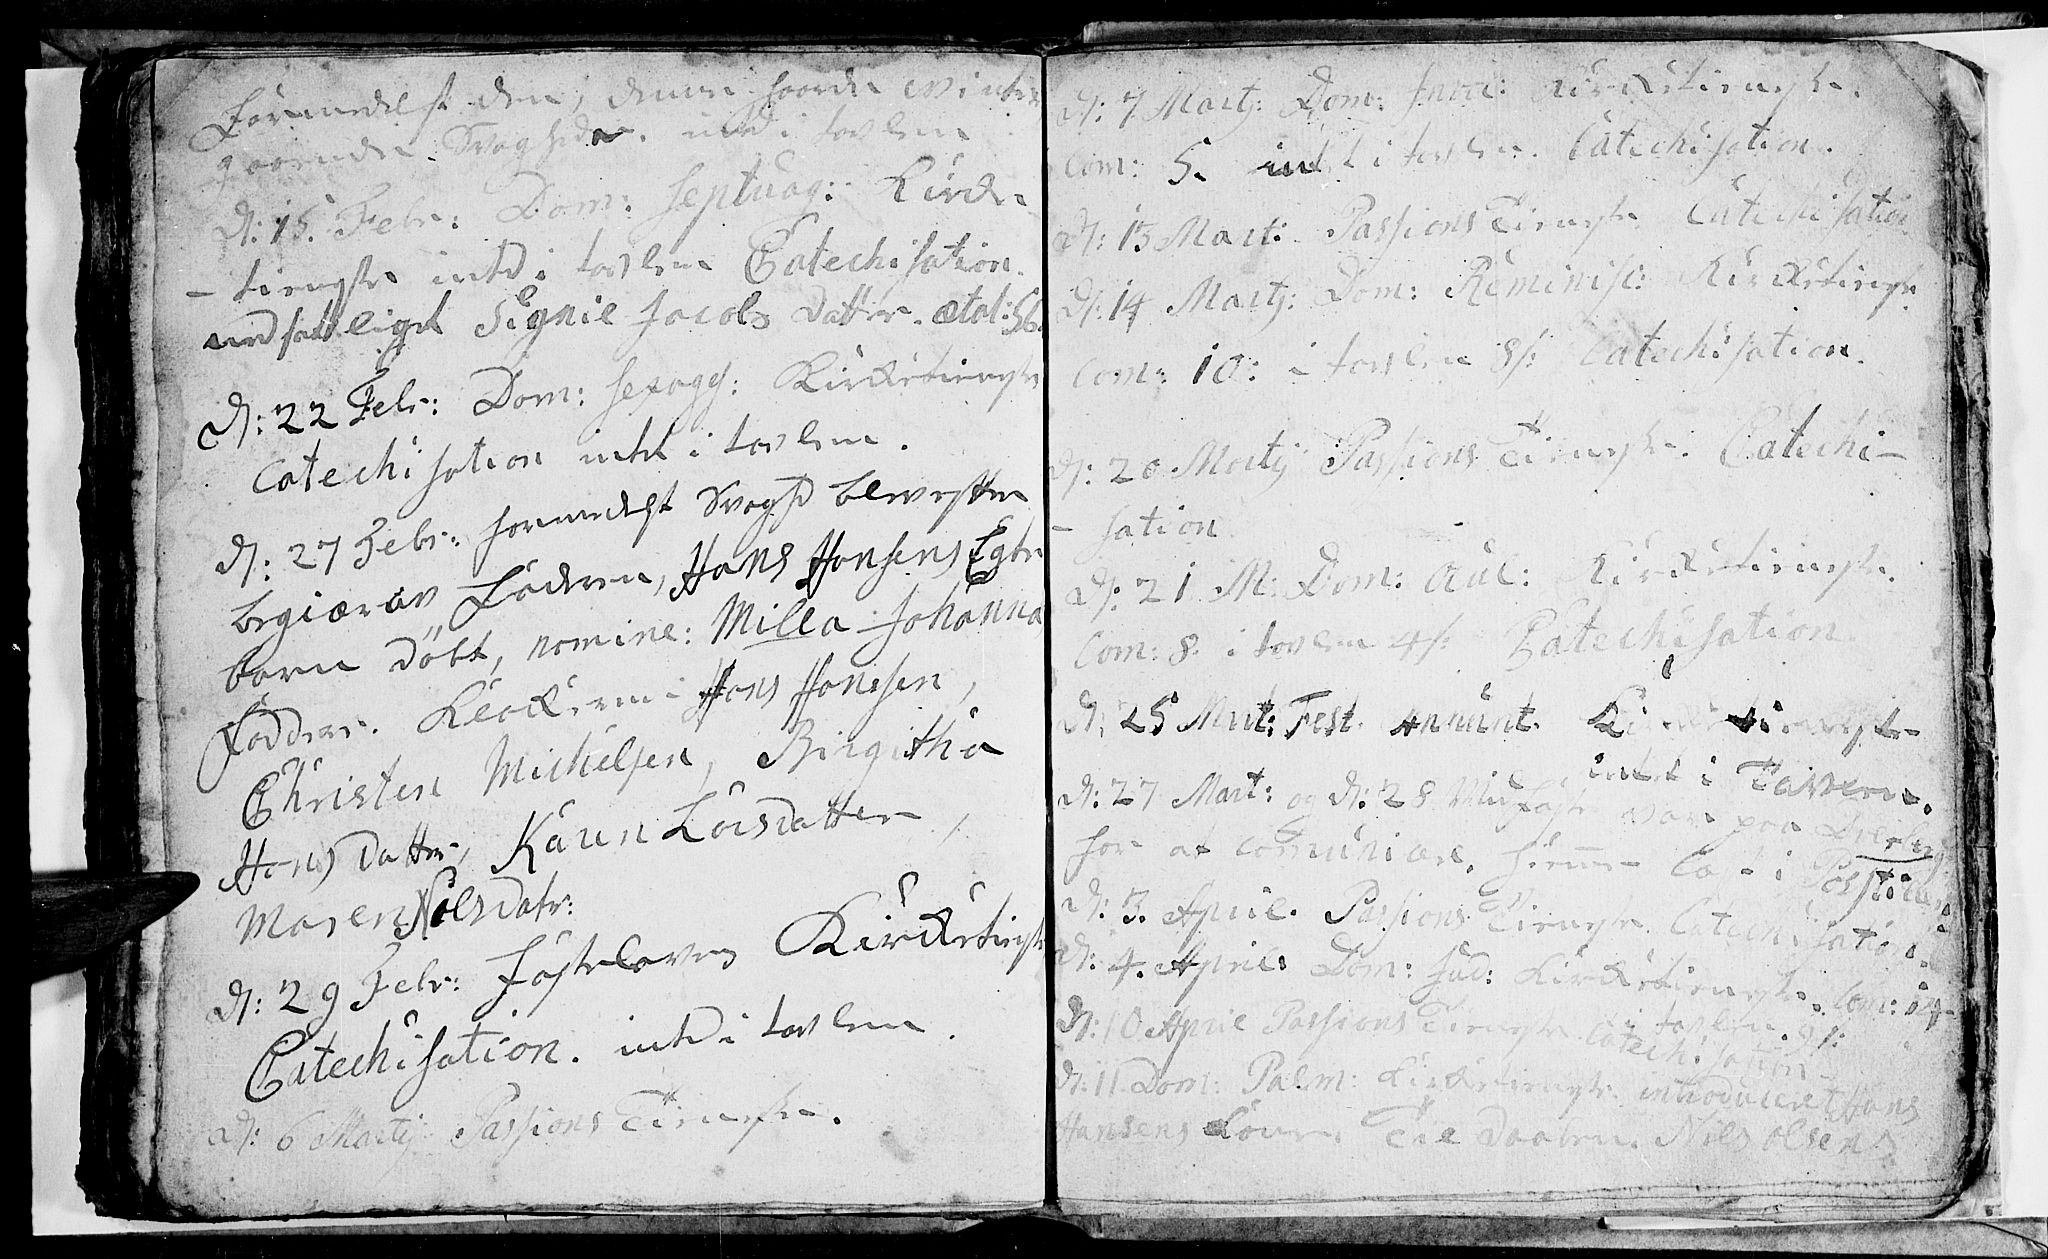 Formedelst den, denne haarde Vinter
gaaende Svaghed. intet i tavlen
d: 15. Febr: Dom: Septuag: Kirke
- tieneste intet i tavlen Catechisation.
Signie Jacobs Datter. ætat: 56.
d: 22 Febr: Dom: Sexages: Kirketieneste
Catechisation intet i tavlen.
d: 27 Febr: formedelst Svaghed blev efter
begiær av Faderen, Hans Hansens Egte
barn döbt, nomine: Milla Johanna
Faddere. Klockeren Hans Hanssen,
Christen Michelsen, Birgitha
Hans Datter, Karen Loisdatter,
Maren Nilsdatr:
d: 29 Febr: Fastelavens Kirketieneste
Catechisation. intet i tavlen.
d: 6 Martij Passions Tieneste.
d: 7 Martj: Dom: Invoc: Kirketieneste.
Com: 5. intet i tavlen. Catechisation.
d: 13 Mart: Passions Tieneste Catechisation
d: 14 Martj: Dom: Reminisc: Kirketieneste
Com: 10: i tavlen 8 s: Catechisation.
d: 20 Martij Passions Tieneste. Catechi-
- sation
d: 21 M: Dom: Ocul: Kirketieneste.
Com: 8. i tavlen 4 s: Catechisation
d: 25 Mart: Fest. Annunt. Kirketieneste
intet i Tavlen.
d: 27 Mart: og d: 28 Midfaste var paa
for at comunicere, hiemme læst i Postillen
d: 3. April. Passions Tieneste. Catechisation.
d: 4. April: Dom: Jud: Kirketieneste. Com: 14
i tavlen. 9 s:
d: 10 April Passions Tieneste Catechisation
d: 11 Dom: Palm: Kirketieneste introduceret Hans
Hansens Kone. Til Daaben. Nils Olsens